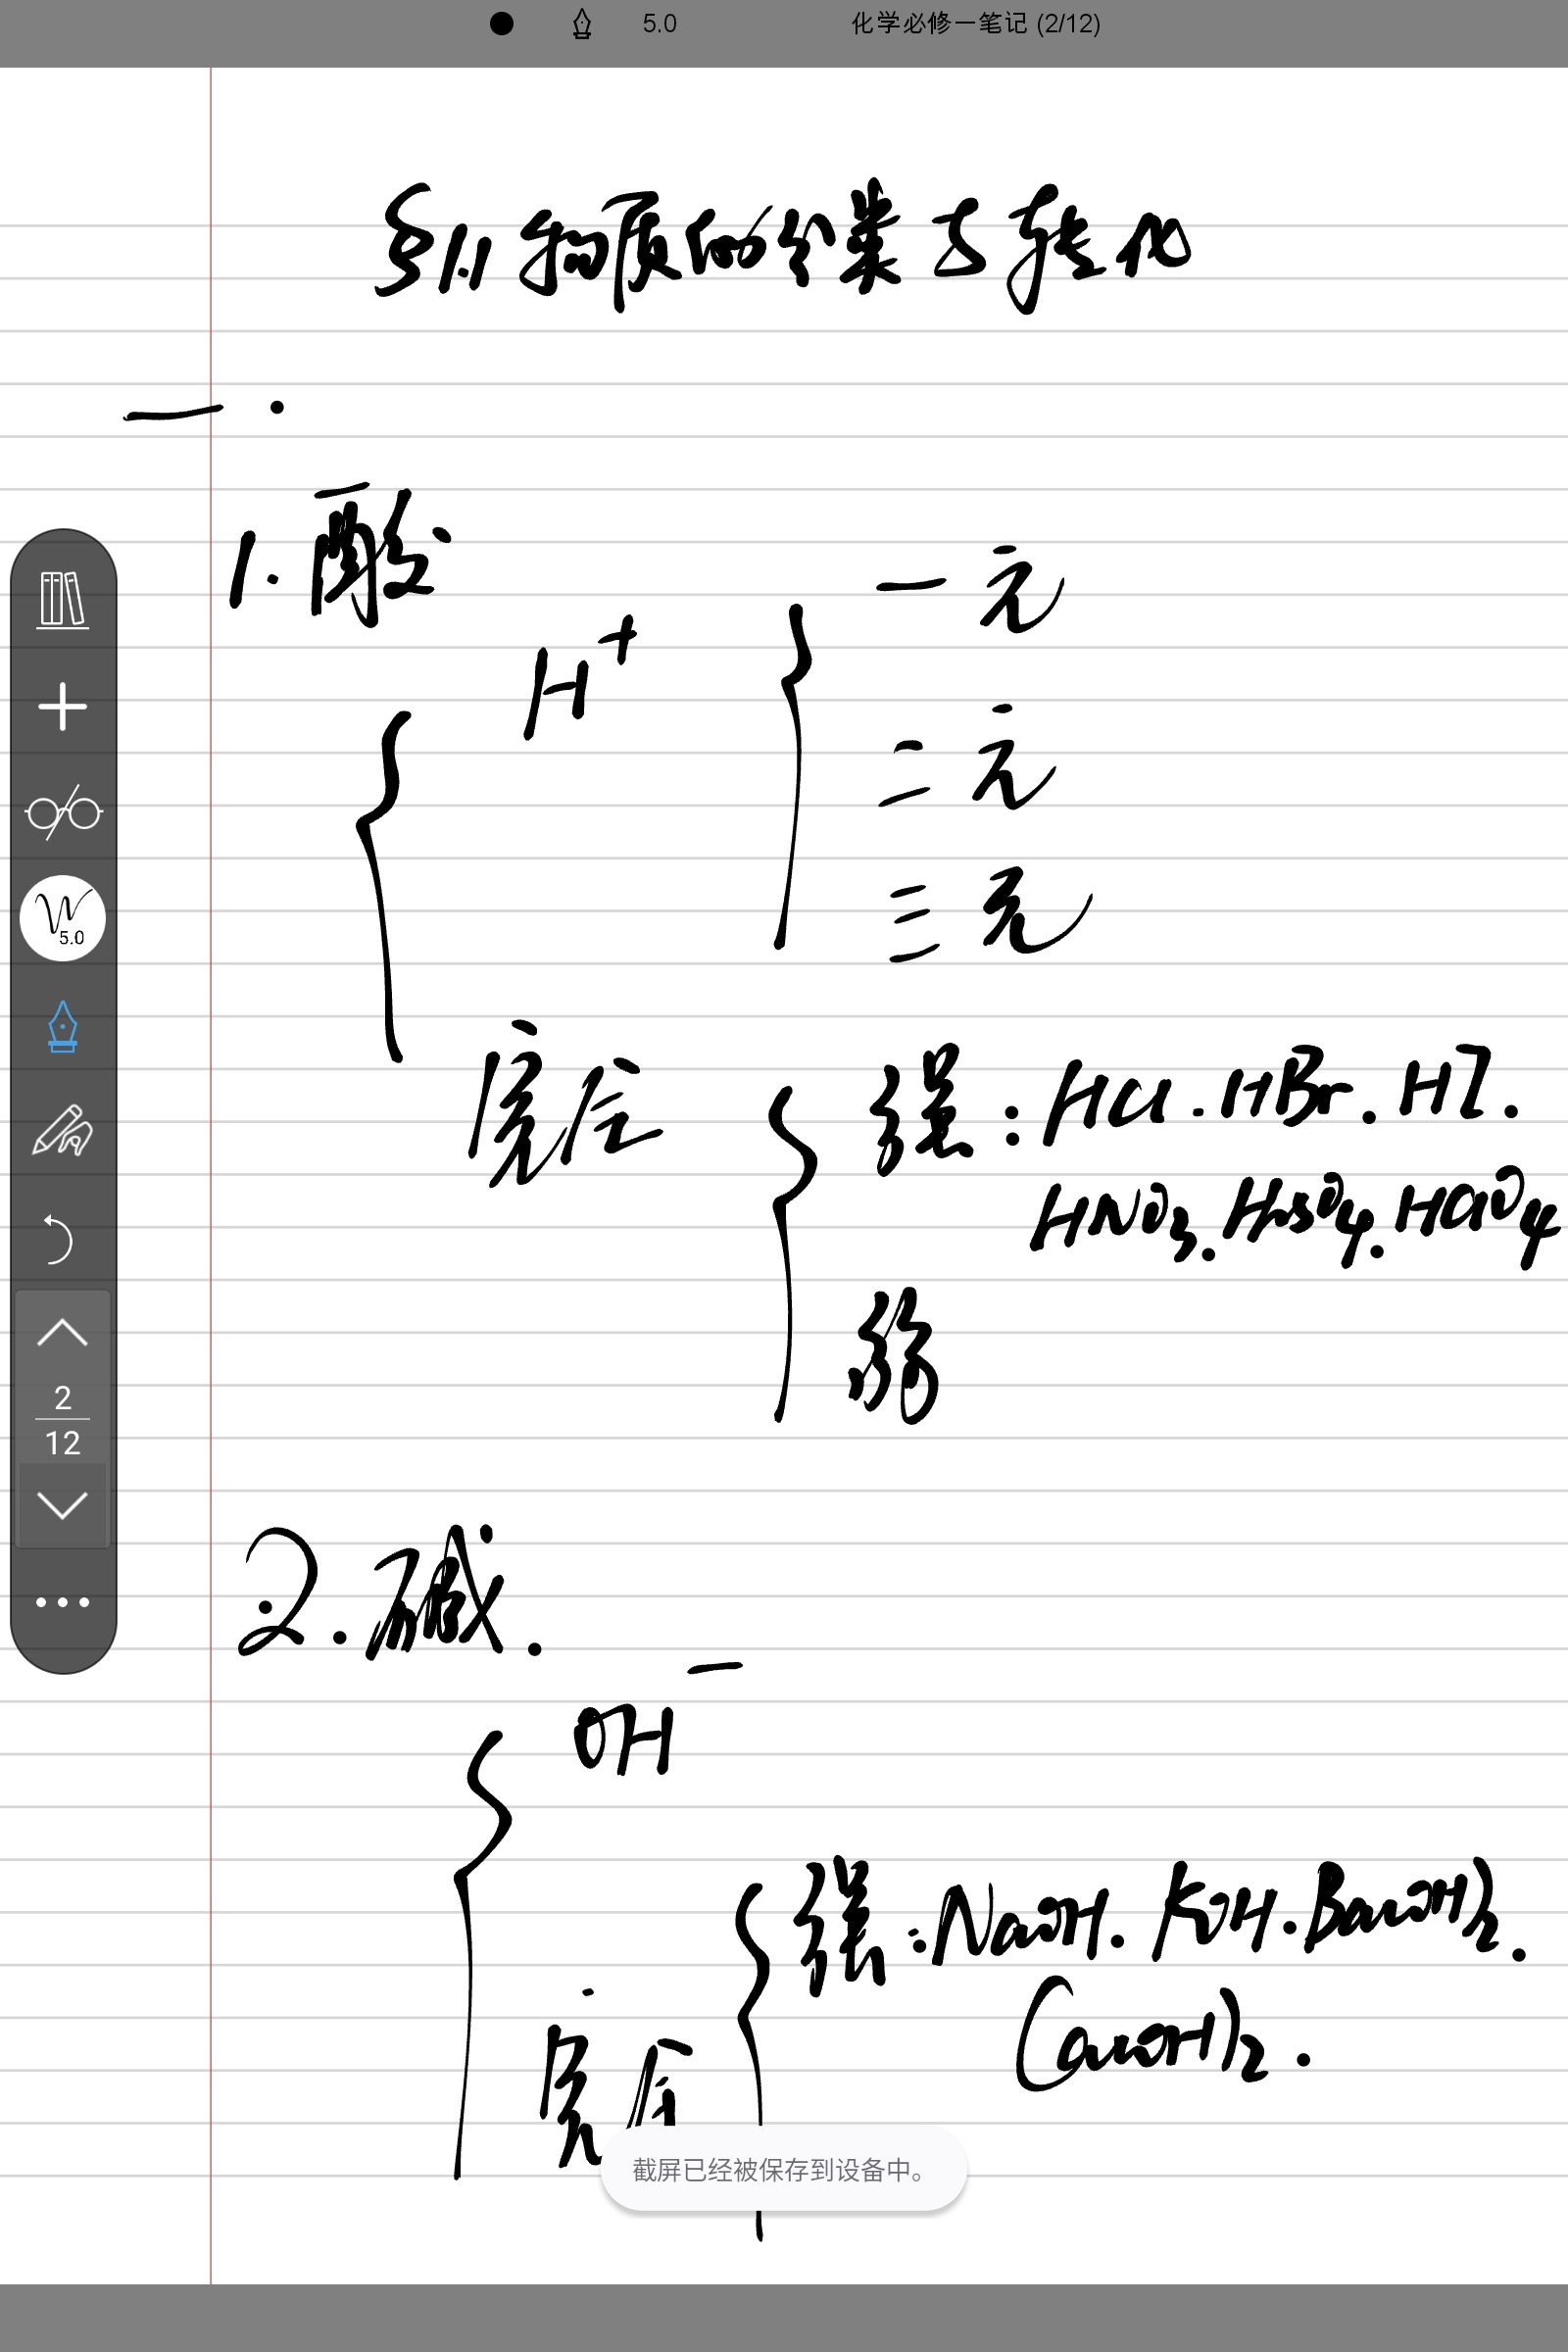 5.0 化学必修一笔记 (2/12)
§1.1 物质的分类与转化
一.
1. 酸
H⁺
一元
二元
三元
强弱
强: HCl. HBr. HI.
HNO₃. H₂SO₄. HClO₄
弱
2. 碱.
OH⁻
强: NaOH. KOH. Ba(OH)₂.
Ca(OH)₂.
5.0
2
12
截屏已经被保存到设备中。